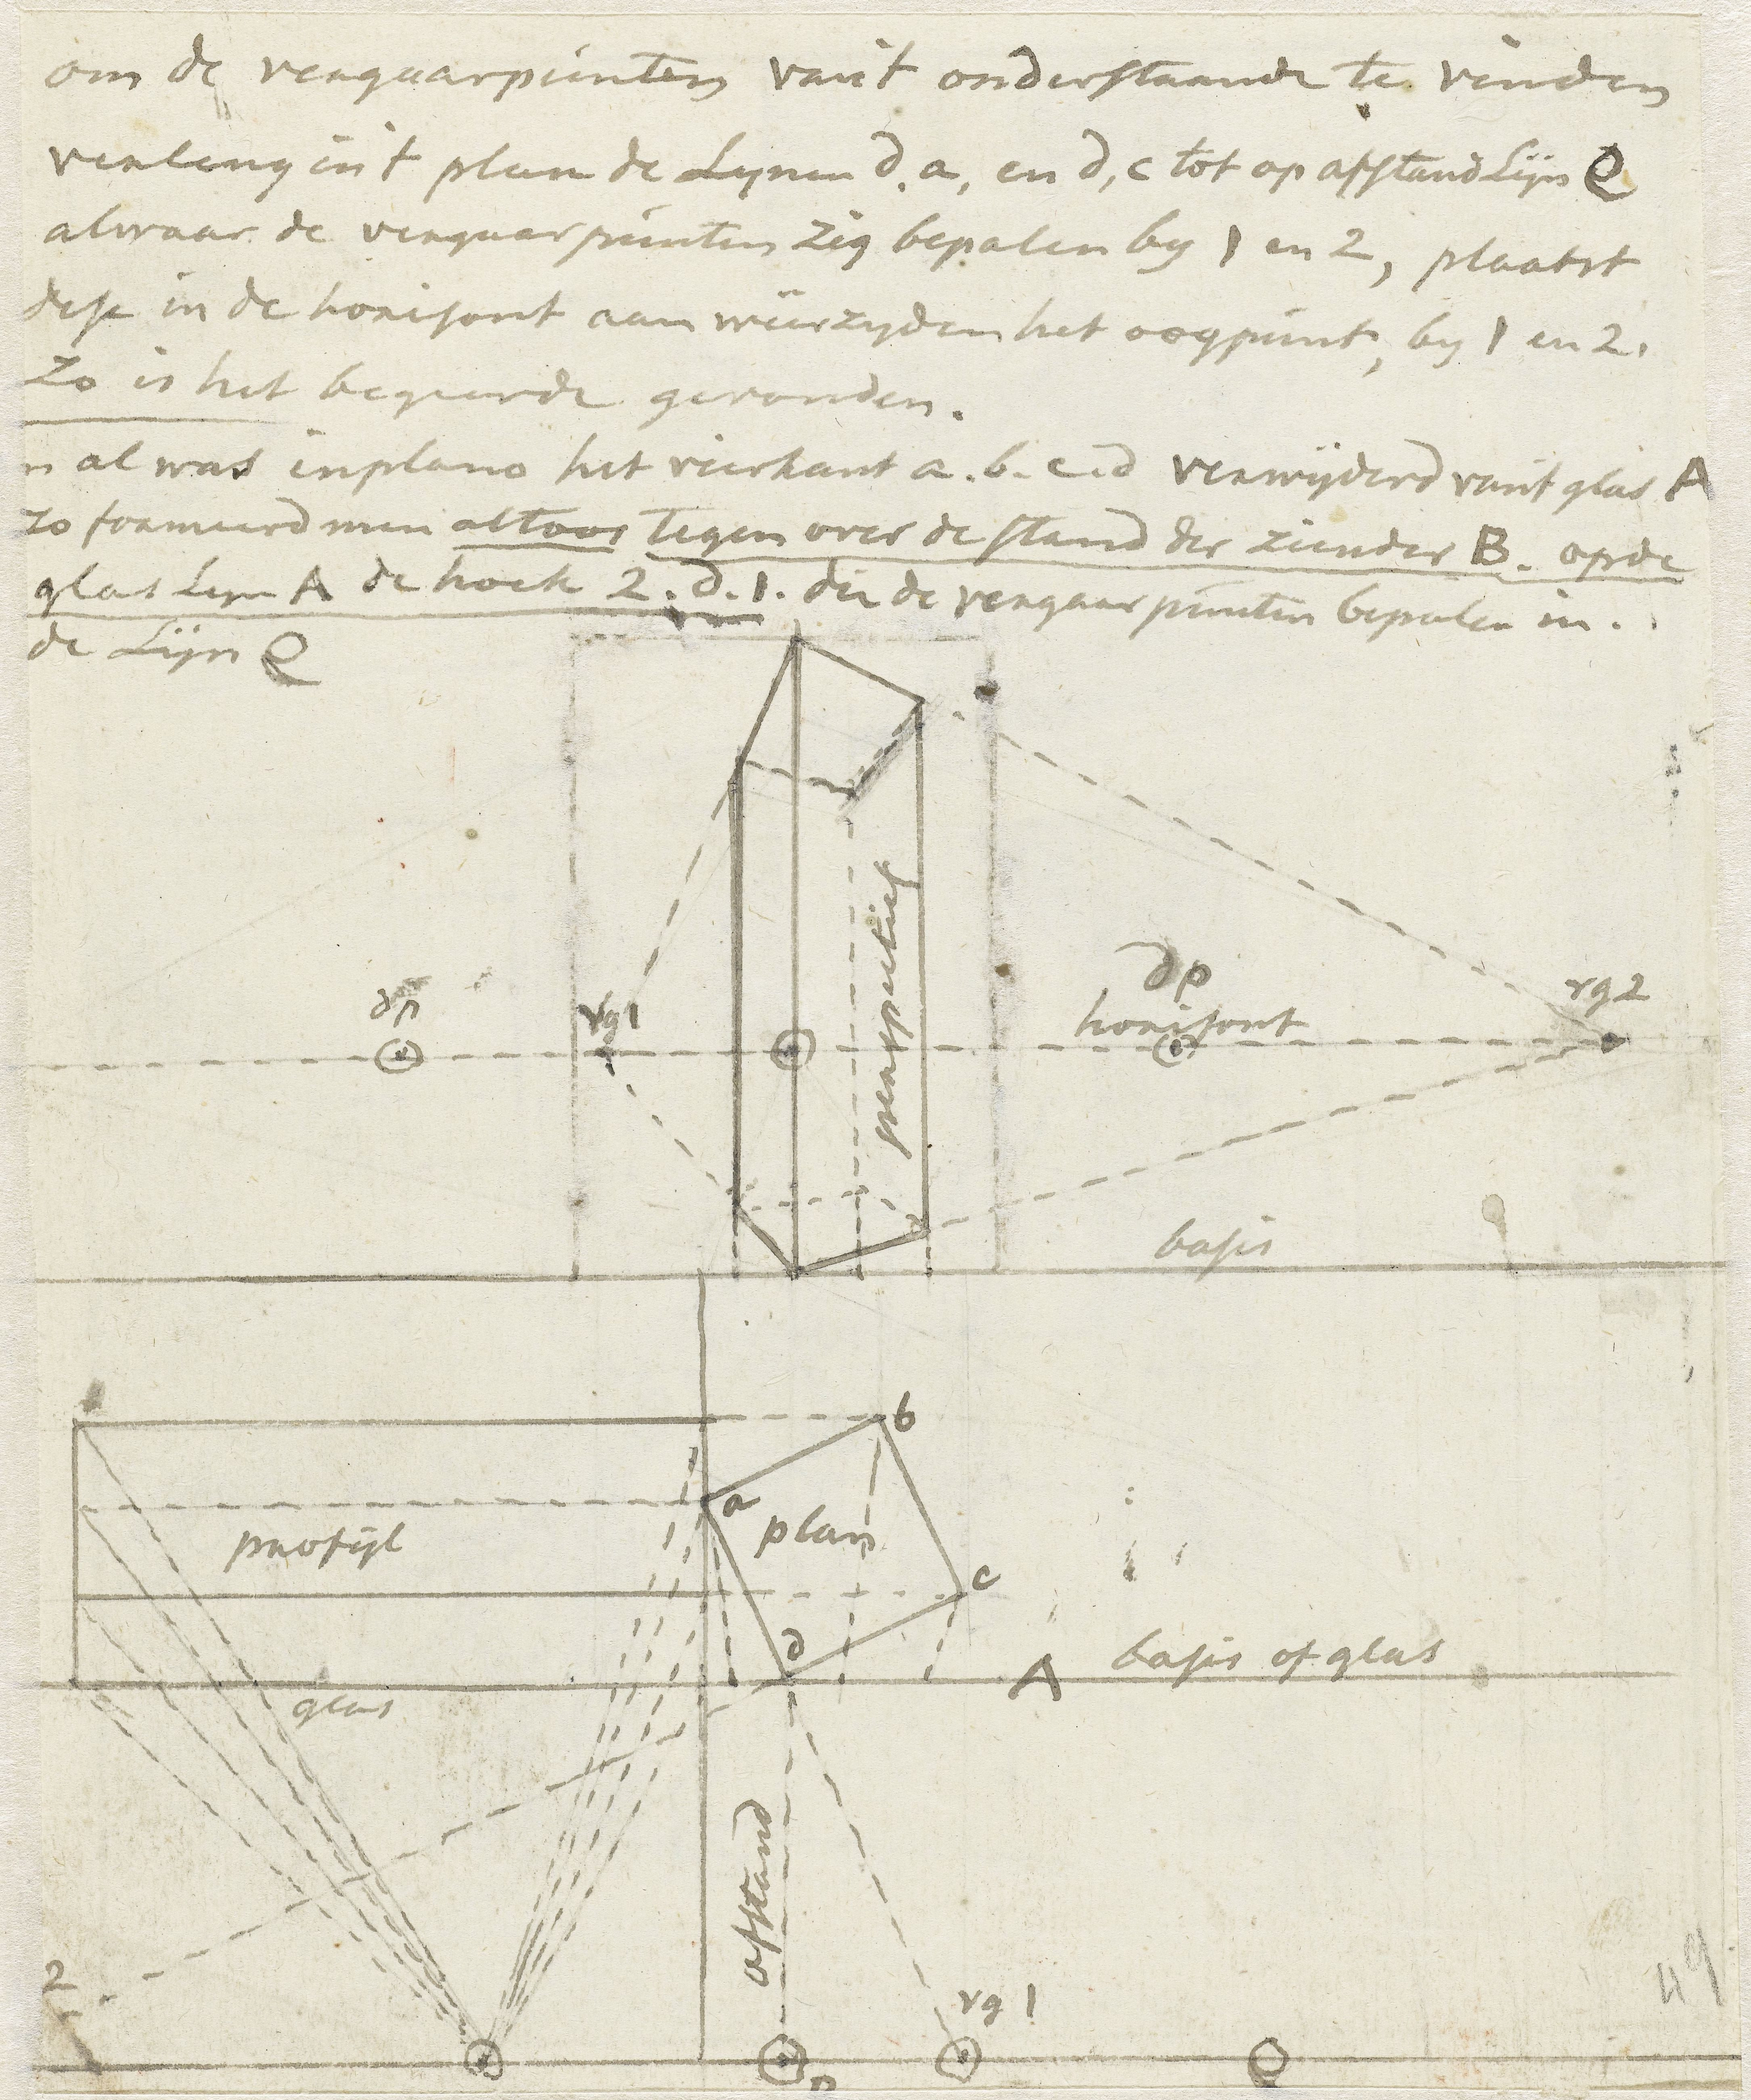 om de vergaarpunten van't onderstaande te vinden
verleng in't plan de Lynen d.a, en d,c tot op afstandLijn Q
alwaar de vergaarpunten zig bepalen by 1 en 2, plaatst
dese in de horisont aan weerzyden het oogpunt, by 1 en 2.
Zo is het begeerde gevonden.
n al was inplano het vierkant a.b.c.d verwijderd van't glas A
zo formeerd men altoos tegen over de stand der ziender B. op de
glas Lyn A de hoek 2.d.1. die de vergaarpunten bepalen in
de Lijn Q
perspectief
dp
vg1
dp
horisont
vg2
basis
b
a
plan
profijl
c
d
A
basis of glas
glas
afstand
2
vg 1
B
Q
49